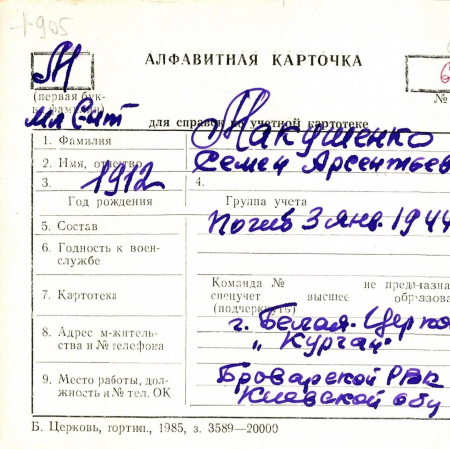 1-905
М
АЛФАВИТНАЯ КАРТОЧКА
6
(первая бук-
ва фамилии)
№
мл с-нт
для справок по учетной картотеке
1. Фамилия Макушенко
2. Имя, отчество Семен Арсентьев
3. 1912 4.
Год рождения Группа учета
5. Состав Погиб 3 янв. 1944
6. Годность к воен-
службе
Команда № не предназна
7. Картотека спецучет высшее образова
(подчеркнуть)
8. Адрес м-житель-
ства и № телефона
г. Белая-Церко
"Курган"
9. Место работы, дол-
жность и № тел. ОК
Броварской РВК
Киевской обл
Б. Церковь, гортип., 1985, з. 3589—20000